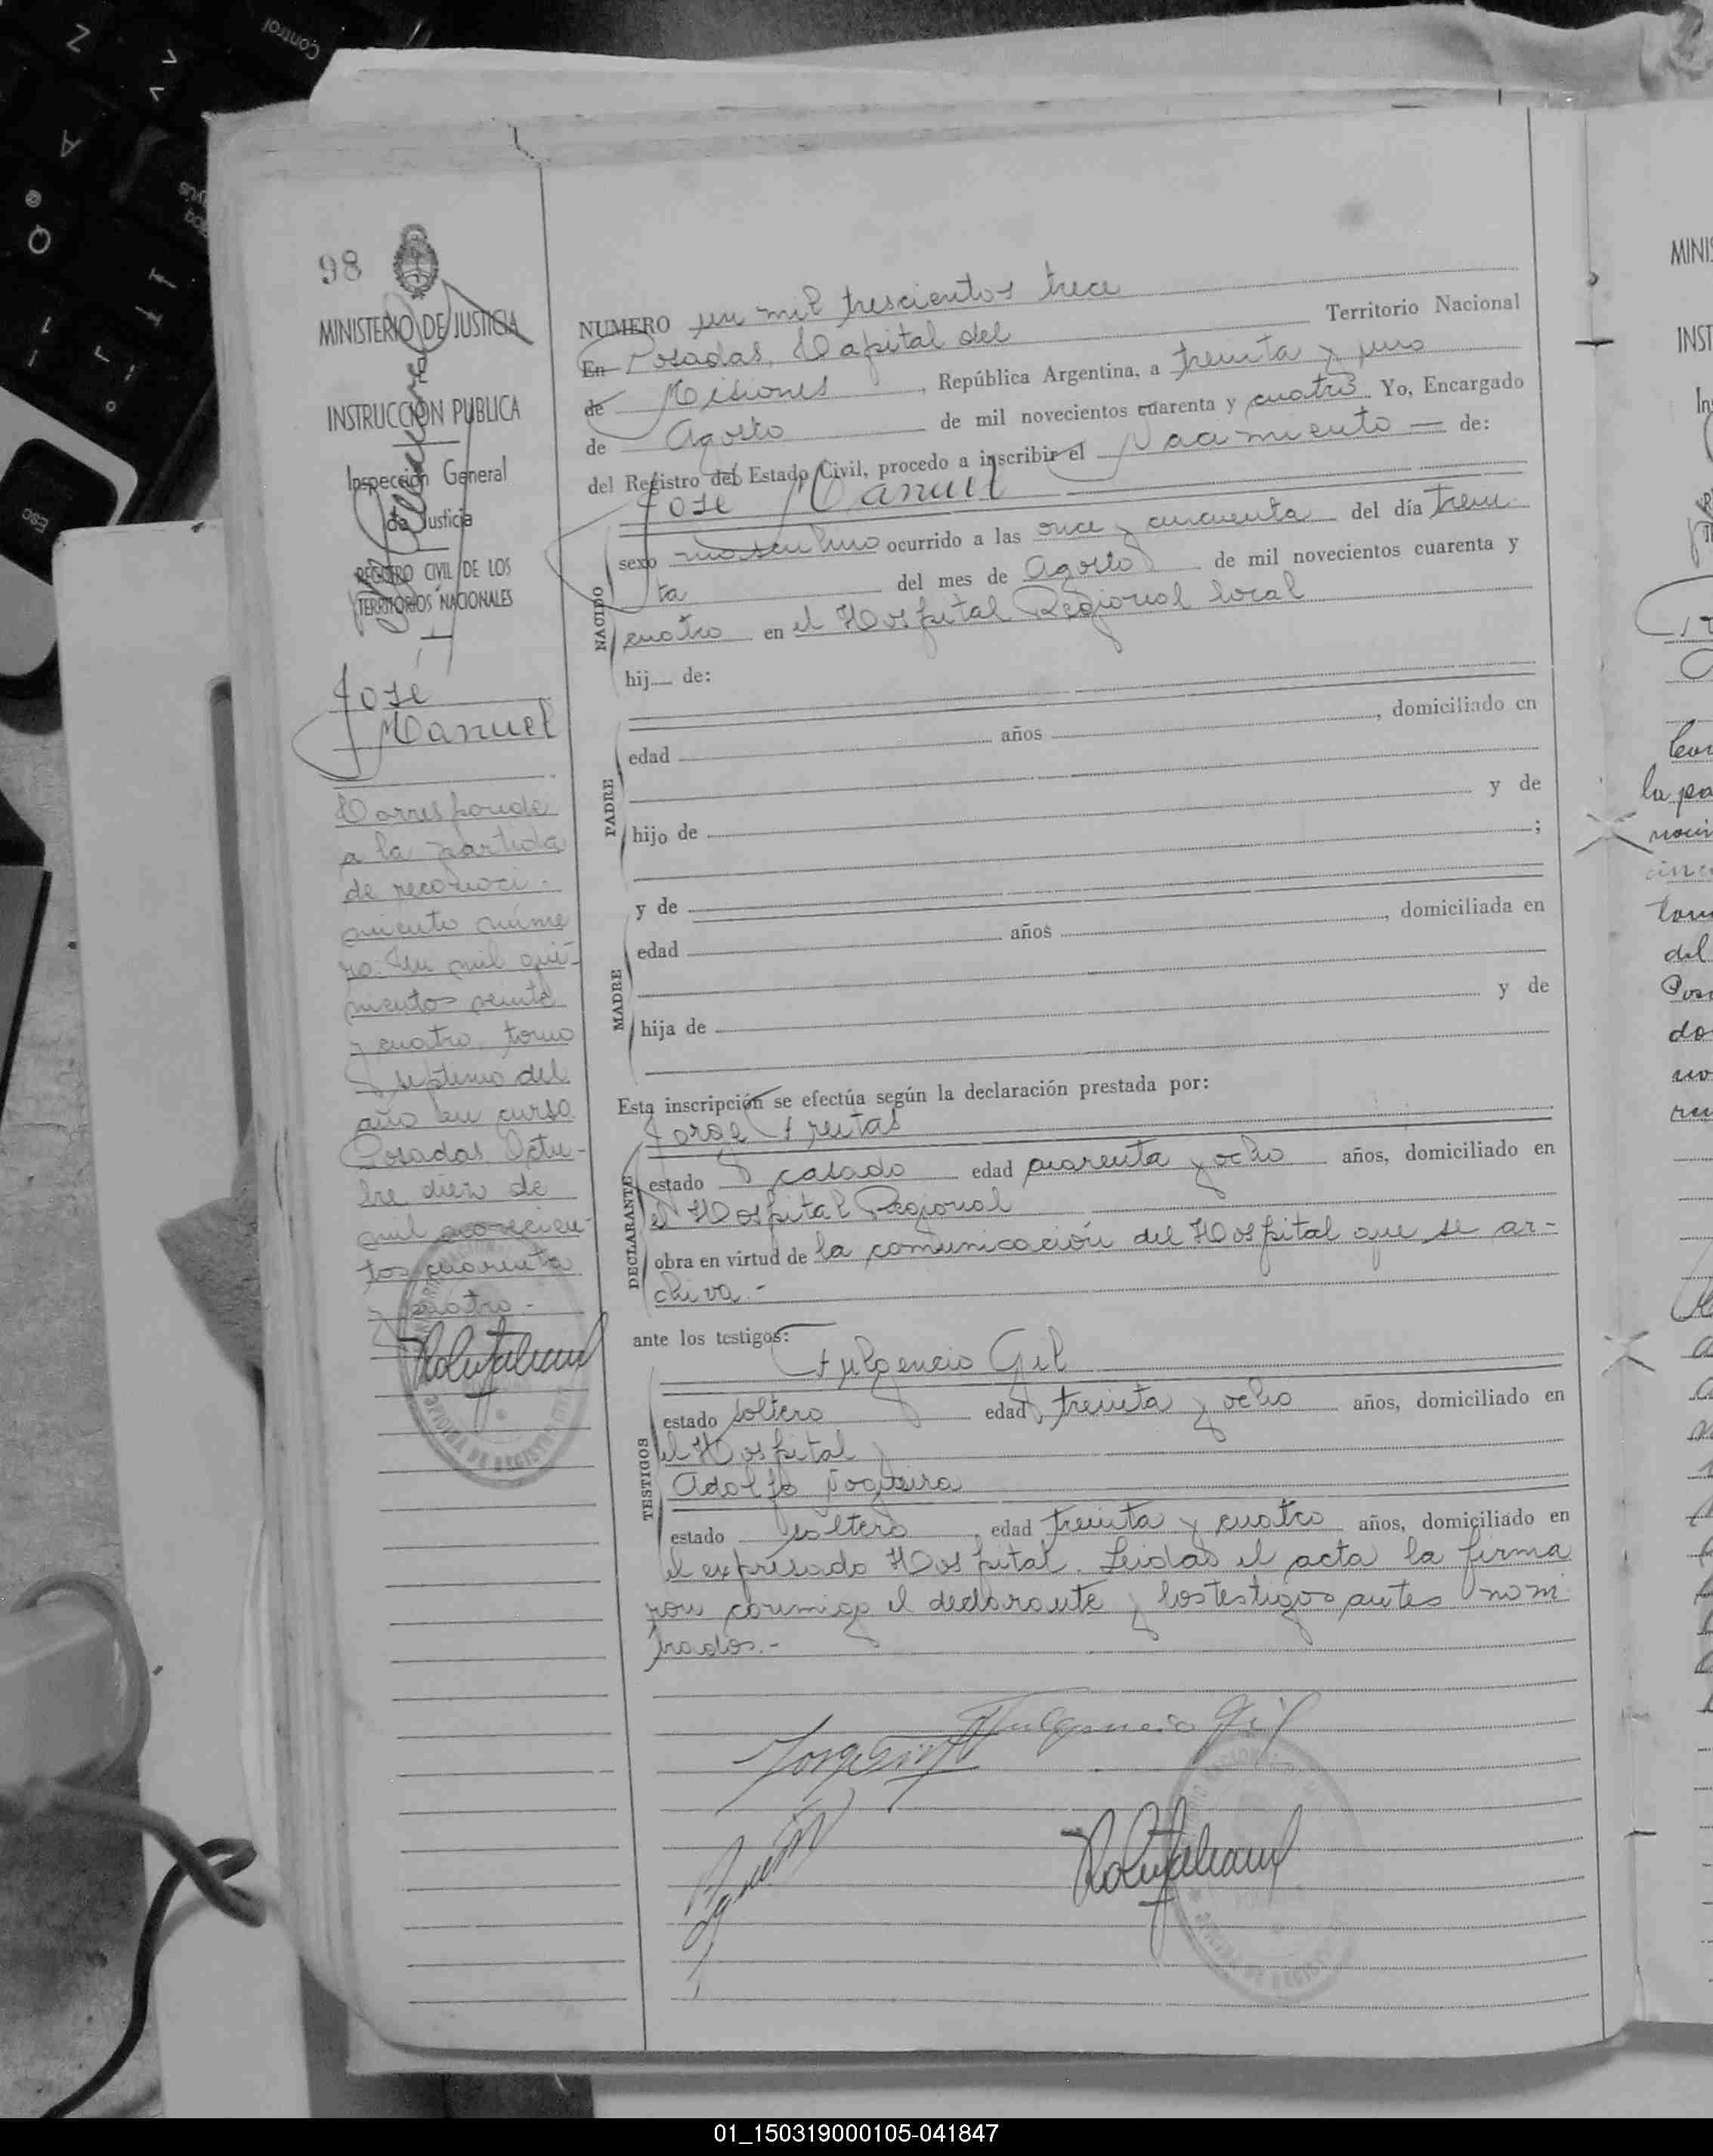 98
MINISTERIO DE JUSTICIA
INSTRUCCION PUBLICA
Inspección General
de Justicia
REGISTRO CIVIL DE LOS
TERRITORIOS NACIONALES
Jose
Manuel
Corresponde
a la partida
de reconoci-
miento núme
ro: Un mil qui-
nientos veinte
y cuatro, tomo
septimo del
año en curso.
Posadas, Octu-
bre diez de
mil novecien-
tos cuarenta
y cuatro.-
NUMERO un mil trescientos trece
En Posadas, Capital del Territorio Nacional
de Misiones, República Argentina, a treinta y uno
de Agosto de mil novecientos cuarenta y cuatro. Yo, Encargado
del Registro del Estado Civil, procedo a inscribir el Nacimiento — de:
Jose Manuel
NACIDO
sexo masculino ocurrido a las once y cincuenta del día trein-
ta del mes de Agosto de mil novecientos cuarenta y
cuatro en el Hospital Regional local
hij de:
PADRE
edad años, domiciliado en
hijo de y de
;
y de
MADRE
edad años, domiciliada en
hija de y de
Esta inscripción se efectúa según la declaración prestada por:
Jorge Freitas
DECLARANTE
estado casado edad cuarenta y ocho años, domiciliado en
el Hospital Regional
obra en virtud de la comunicación del Hospital que se ar-
chiva.-
ante los testigos:
Fulgencio Gil
TESTIGOS
estado soltero edad treinta y ocho años, domiciliado en
el Hospital
Adolfo Nogueira
estado soltero, edad treinta y cuatro años, domiciliado en
el expresado Hospital. Leidas el acta la firma
ron conmigo el declarante y los testigos antes nom
brados.-
Fulgencio Gil
01_150319000105-041847